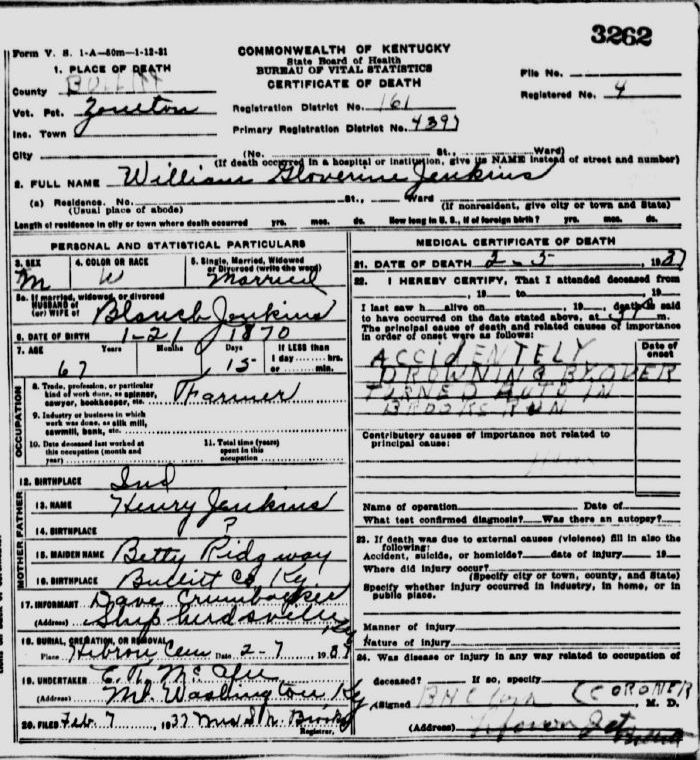 3262
Form V. S. 1-A—50m—1-12-31
COMMONWEALTH OF KENTUCKY
State Board of Health
BUREAU OF VITAL STATISTICS
CERTIFICATE OF DEATH
1. PLACE OF DEATH
County BULLITT
Vot. Pct. Zoneton
Inc. Town
File No.
Registered No. 4
Registration District No. 161
Primary Registration District No. 4397
City (No. St., Ward)
(If death occurred in a hospital or institution, give its NAME instead of street and number)
2. FULL NAME William Gloverine Jenkins
(a) Residence. No. St., Ward
(Usual place of abode) (If nonresident, give city or town and State)
Length of residence in city or town where death occurred yrs. mos. ds. How long in U. S., if of foreign birth? yrs. mos. ds.
PERSONAL AND STATISTICAL PARTICULARS
3. SEX 4. COLOR OR RACE 5. Single, Married, Widowed or Divorced (write the word)
M W Married
5a. If married, widowed, or divorced
HUSBAND of
(or) WIFE of Blanch Jenkins
6. DATE OF BIRTH 1-21 1870
7. AGE Years Months Days If LESS than
1 day hrs.
or min.
67 15
OCCUPATION
8. Trade, profession, or particular
kind of work done, as spinner,
sawyer, bookkeeper, etc. Farmer
9. Industry or business in which
work was done, as silk mill,
sawmill, bank, etc.
10. Date deceased last worked at
this occupation (month and
year)
11. Total time (years)
spent in this
occupation
12. BIRTHPLACE Ind
FATHER
13. NAME Henry Jenkins
14. BIRTHPLACE ?
MOTHER
15. MAIDEN NAME Betty Ridgway
16. BIRTHPLACE Bullitt Co Ky
17. INFORMANT Dave Crumbacker
(Address) Shepherdsville Ky
18. BURIAL, CREMATION, OR REMOVAL
Place Hebron Cem Date 2-7 1937
19. UNDERTAKER McAfee
(Address) Mt. Washington Ky
20. FILED Feb 7 1937 Mrs S. N. Brooks
Registrar.
MEDICAL CERTIFICATE OF DEATH
21. DATE OF DEATH 2-5 1937
22. I HEREBY CERTIFY, That I attended deceased from
19 to 19
I last saw h alive on 19 death is said
to have occurred on the date stated above, at m.
The principal cause of death and related causes of importance
in order of onset were as follows:
Date of onset
ACCIDENTELY
DROWNING BY OVER
TURNED AUTO IN
BROOKS RUN
Contributory causes of importance not related to
principal cause:
Name of operation Date of
What test confirmed diagnosis? Was there an autopsy?
23. If death was due to external causes (violence) fill in also the
following:
Accident, suicide, or homicide? date of injury 19
Where did injury occur?
(Specify city or town, county, and State)
Specify whether injury occurred in industry, in home, or in
public place.
Manner of injury
Nature of injury
24. Was disease or injury in any way related to occupation of
deceased? If so, specify
(Signed) CORONER M. D.
(Address)